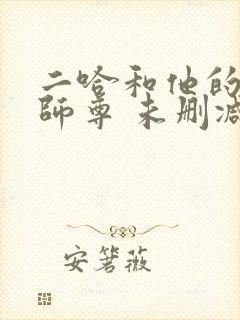 二哈和他的
師尊 未删减
安箸薇